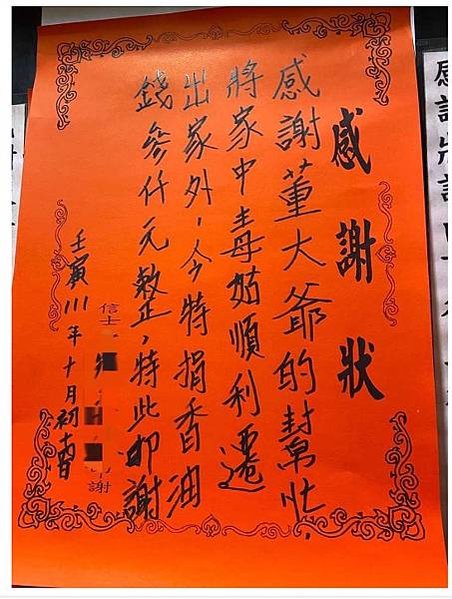 感謝狀
感謝董大爺的幫忙，
將家中毒姑順利遷
出家外，今特捐香油
錢參仟元整，特此叩謝
信士 謝
壬寅111年十月初日